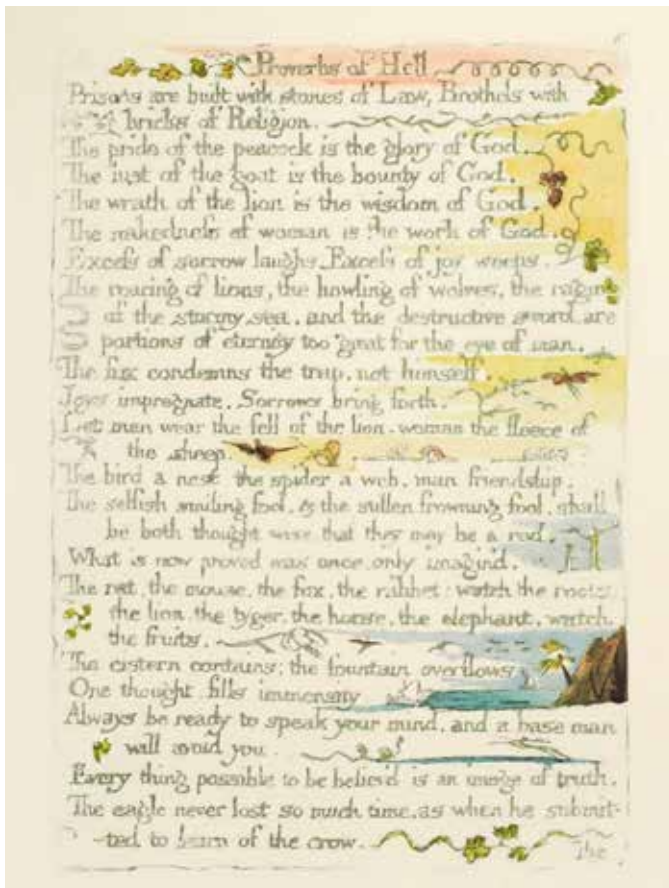 Proverbs of Hell
Prisons are built with stones of Law, Brothels with
bricks of Religion.
The pride of the peacock is the glory of God.
The lust of the goat is the bounty of God.
The wrath of the lion is the wisdom of God.
The nakedness of woman is the work of God.
Excess of sorrow laughs. Excess of joy weeps.
The roaring of lions, the howling of wolves, the raging
of the stormy sea, and the destructive sword, are
portions of eternity too great for the eye of man.
The fox condemns the trap, not himself.
Joys impregnate. Sorrows bring forth.
Let man wear the fell of the lion, woman the fleece of
the sheep.
The bird a nest, the spider a web, man friendship.
The selfish smiling fool, & the sullen frowning fool, shall
be both thought wise that they may be a rod.
What is now proved was once, only imagin'd.
The rat, the mouse, the fox, the rabbet: watch the roots,
the lion, the tyger, the horse, the elephant, watch
the fruits.
The cistern contains; the fountain overflows
One thought fills immensity
Always be ready to speak your mind, and a base man
will avoid you.
Every thing possible to be believ'd is an image of truth.
The eagle never lost so much time, as when he submit-
-ted to learn of the crow.
The